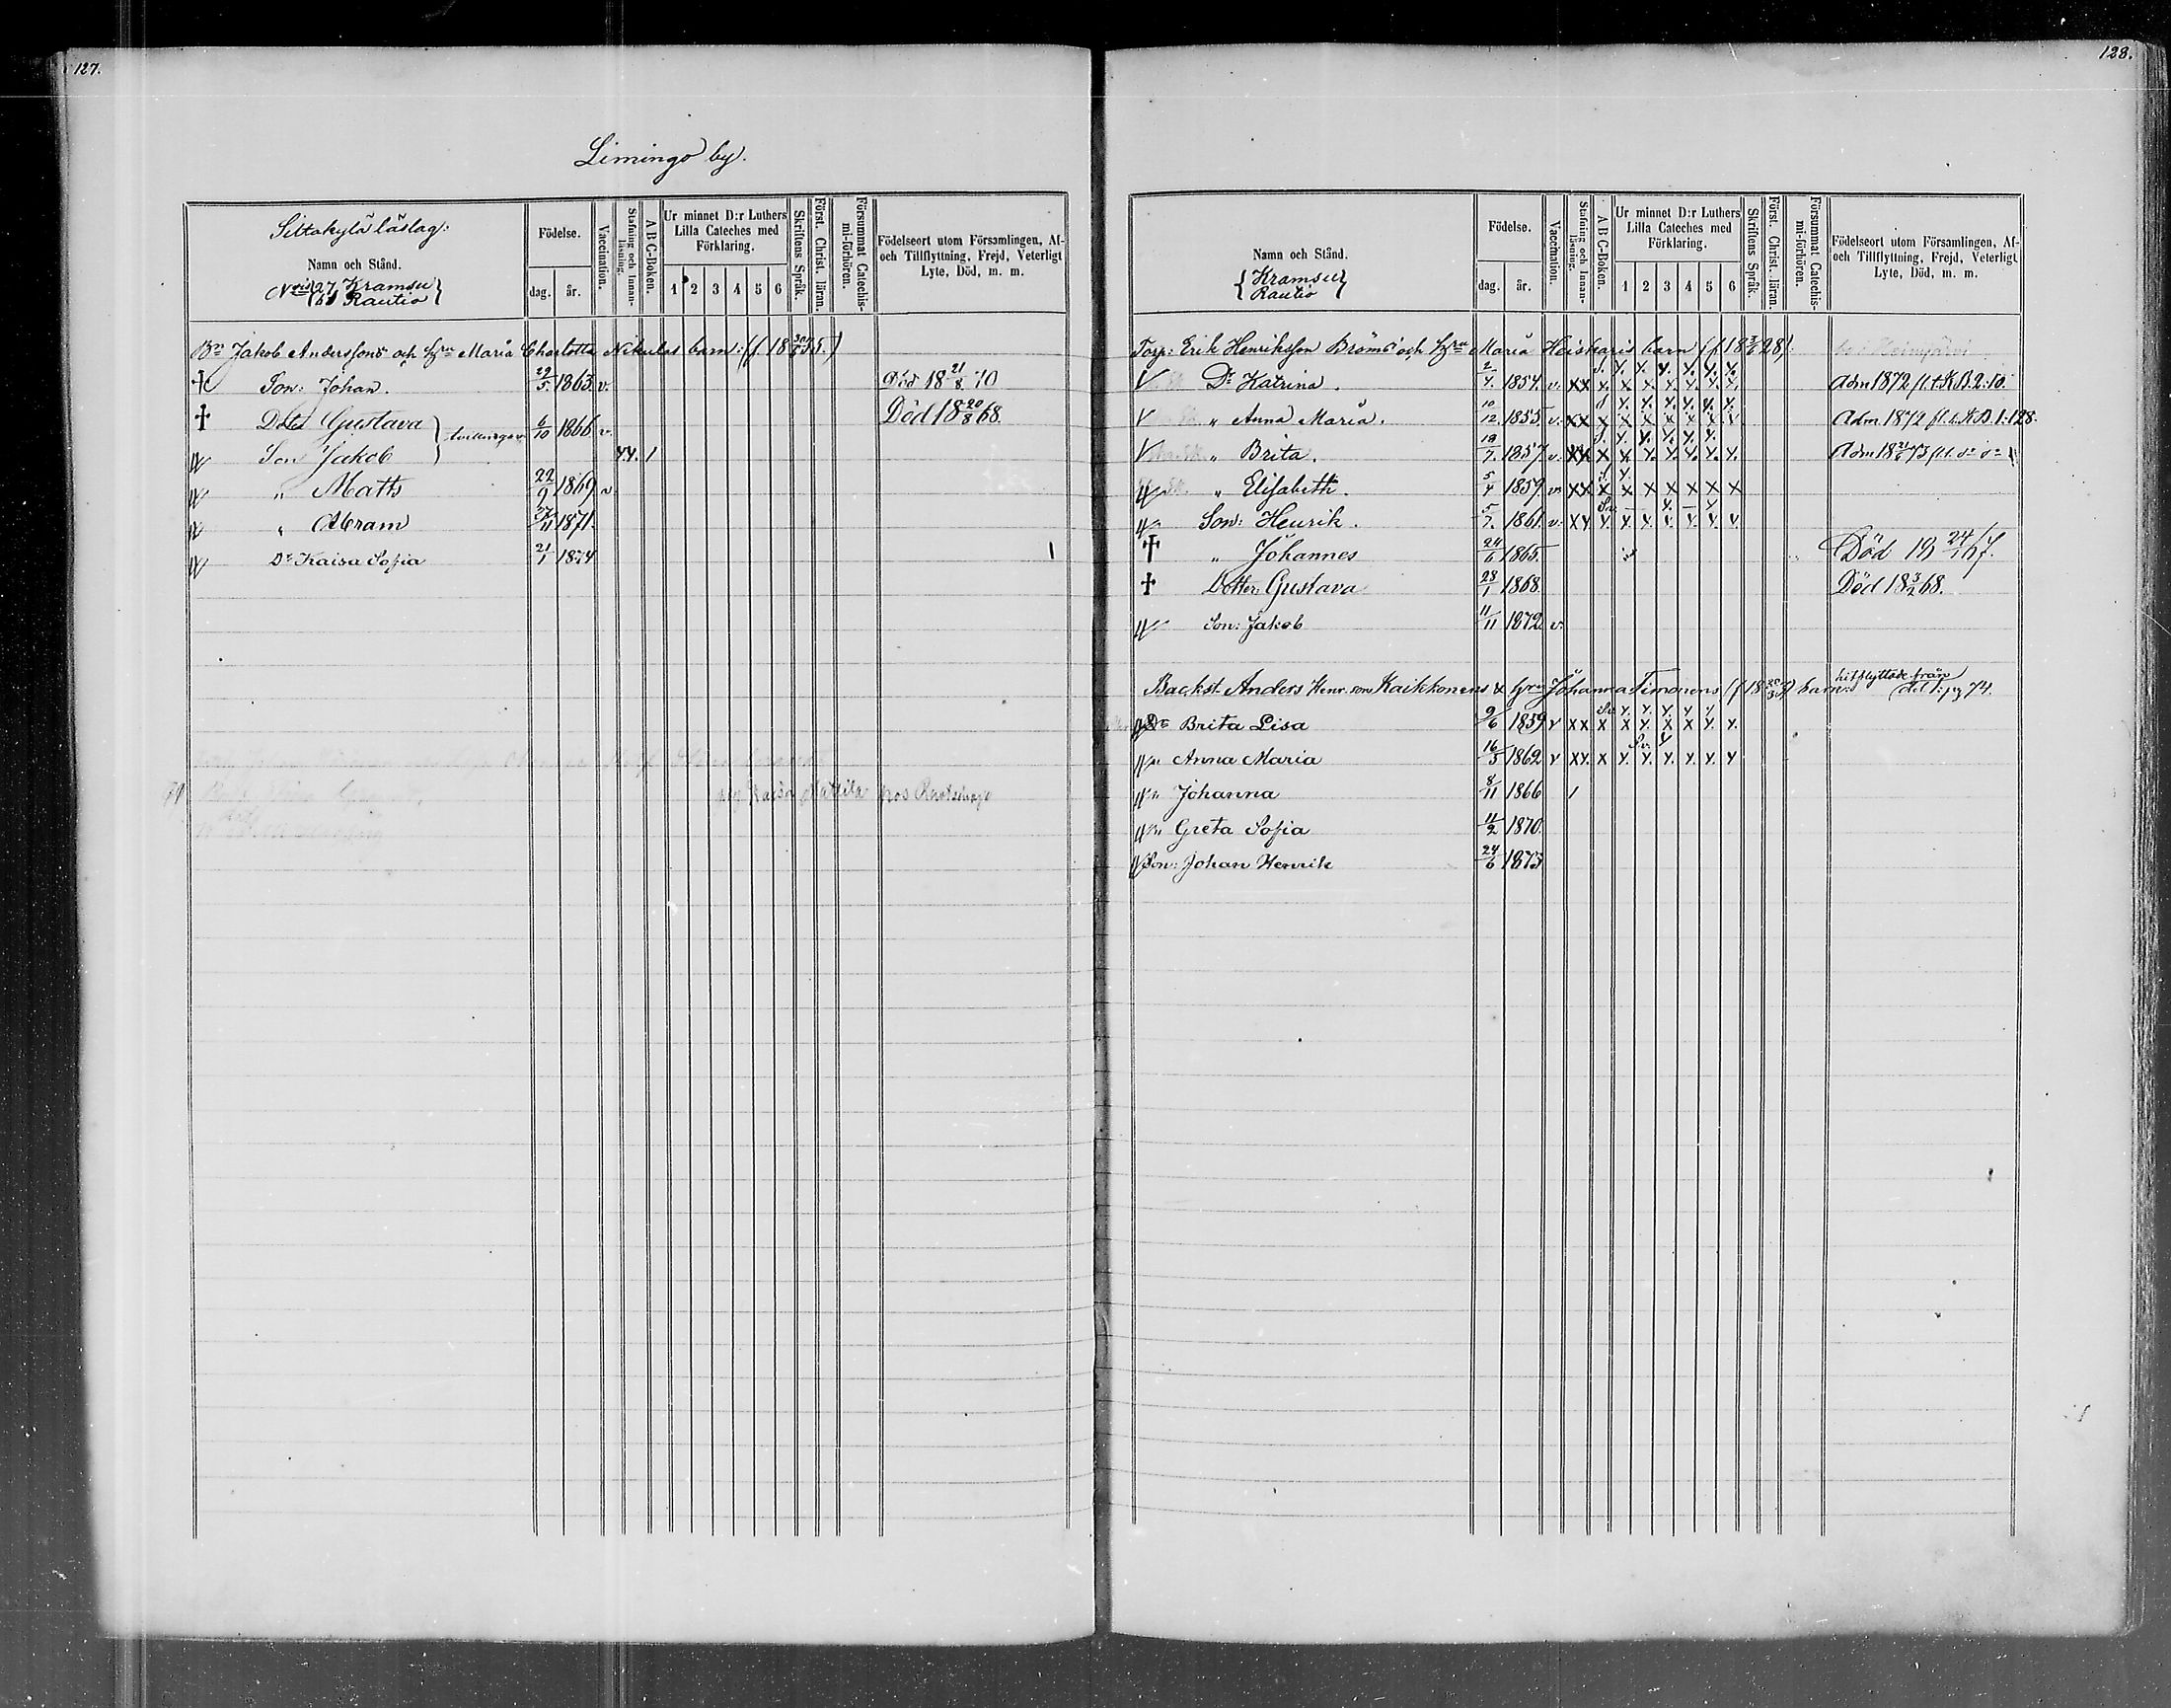 127.
Limingo by.
Siltakylä läslag:
Namn och Stånd.
N:ris 27 Kramsu
61 Rautio
Födelse.
dag. år.
Vaccination.
Stafning och Innanläsning.
A B C-Boken.
Ur minnet D:r Luthers Lilla Cateches med Förklaring.
1 2 3 4 5 6
Skriftens Språk.
Först. Christ. läran.
Försummat Catechismi-förhören.
Födelseort utom Församlingen, Af- och Tillflyttning, Frejd, Veterligt Lyte, Död, m. m.
Bn Jakob Anderssons och hru Maria Charlotta Nikulas barn: (f. 18 20/6 35.)
Son: Johan. 29/5 1863. v. Död 18 21/8 70
Dotter Gustava tvillingar 6/10 1866 v. Död 18 20/8 68.
Son Jakob
" Matts 22/9 1869 v.
" Abram 27/11 1871.
Dr Kaisa Sofia 21/1 1874
Kaisa Mattila hos
128.
Namn och Stånd.
Kramsu
Rautio
Födelse.
dag. år.
Vaccination.
Stafning och Innanläsning.
A B C-Boken.
Ur minnet D:r Luthers Lilla Cateches med Förklaring.
1 2 3 4 5 6
Skriftens Språk.
Först. Christ. läran.
Försummat Catechismi-förhören.
Födelseort utom Församlingen, Af- och Tillflyttning, Frejd, Veterligt Lyte, Död, m. m.
Torp: Erik Henriksson Bröms och hru Maria Heiskaris barn (f. 18 3/6 28).
Dr Katrina. 2/4. 1854. v. Adm 1872 fl. t. K.B. 2:10.
" Anna Maria. 10/12. 1855. v. Adm. 1872 fl. t. K.B. 1:128.
" Brita. 18/7. 1857. v. Adm 18 21/6 73 fl. t. do do
" Elisabeth. 5/4 1859. v.
Son: Henrik. 5/7. 1861. v.
" Johannes 24/6 1865. Död 18 24/1 67.
Dotter: Gustava 28/1 1868. Död 18 3/2 68.
Son: Jakob 11/11 1872 v.
Backst. Anders Henr. sons Kaikkonens & hru Johanna Timonens barn: hitflyttade från
del 1: pg 74.
Dr Brita Lisa 9/6 1859 v
" Anna Maria 16/5 1862 v
" Johanna 8/11 1866
" Greta Sofia 11/2 1870.
Son: Johan Henrik 24/6 1873